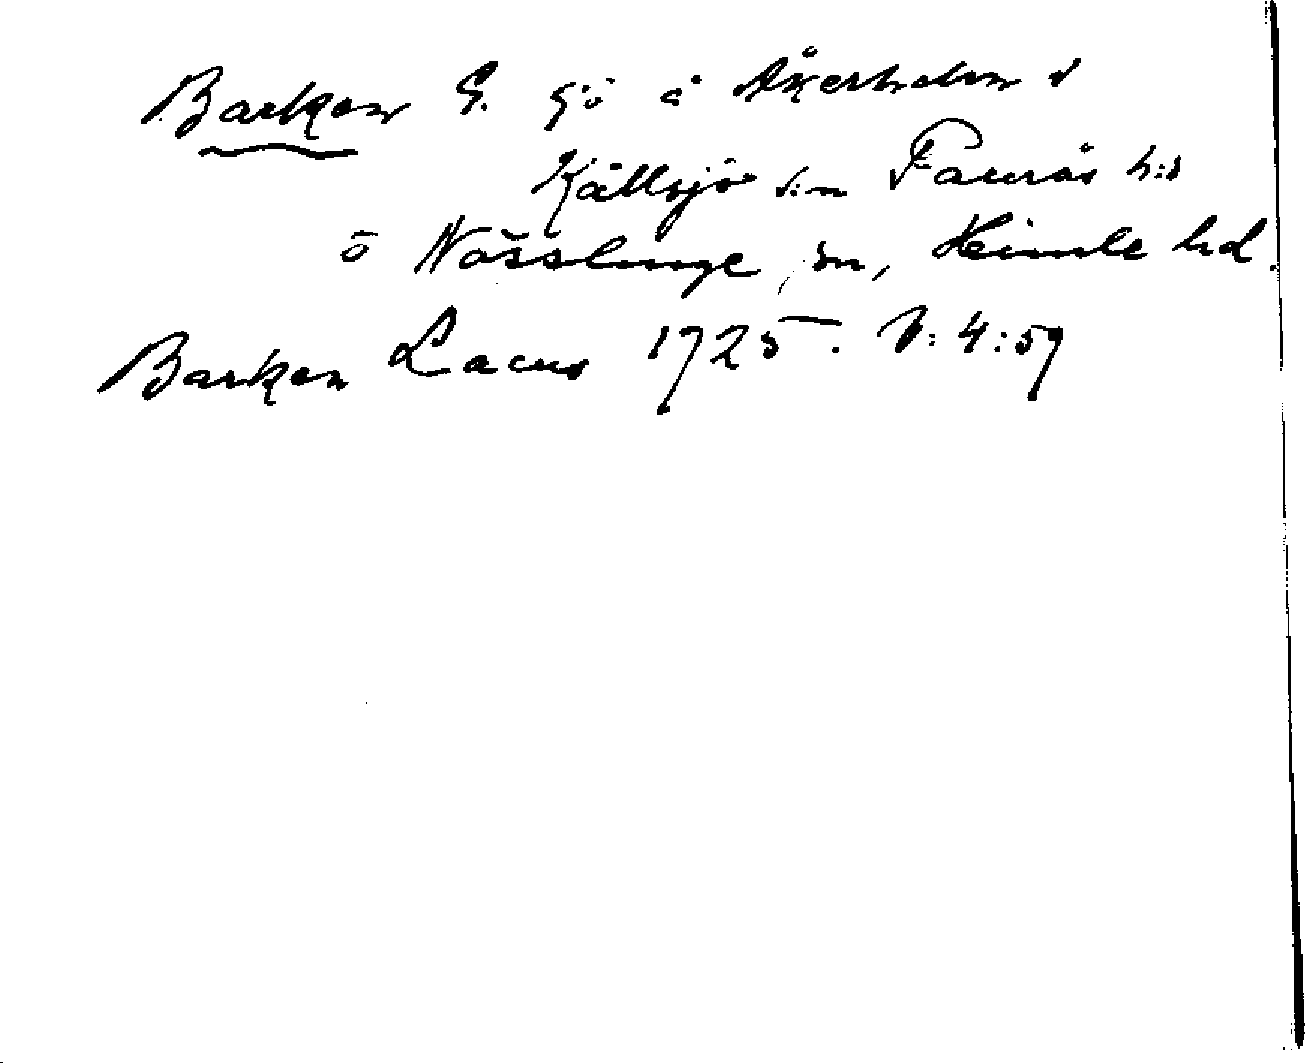 Barken S. sjö å Åkerholm i
Källsjö s:n Faurås h:d
o Nösslinge sn, Heimle hd.
Barken Lacus 1725. V: 4:59